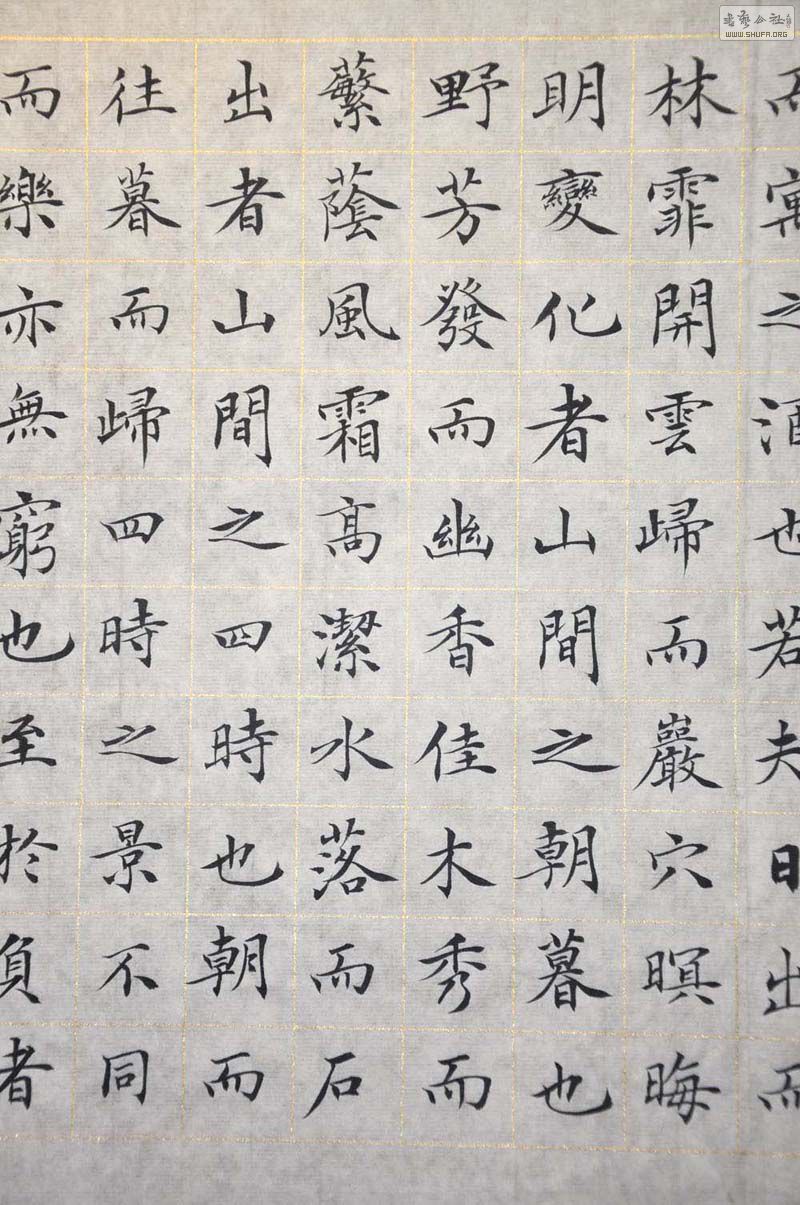 而寓之酒也若夫日出而
林霏開雲歸而巖穴暝晦
明變化者山間之朝暮也
野芳發而幽香佳木秀而
蘩蔭風霜高潔水落而石
出者山間之四時也朝而
往暮而歸四時之景不同
而樂亦無窮也至於負者
書藝公社
WWW.SHUFA.ORG